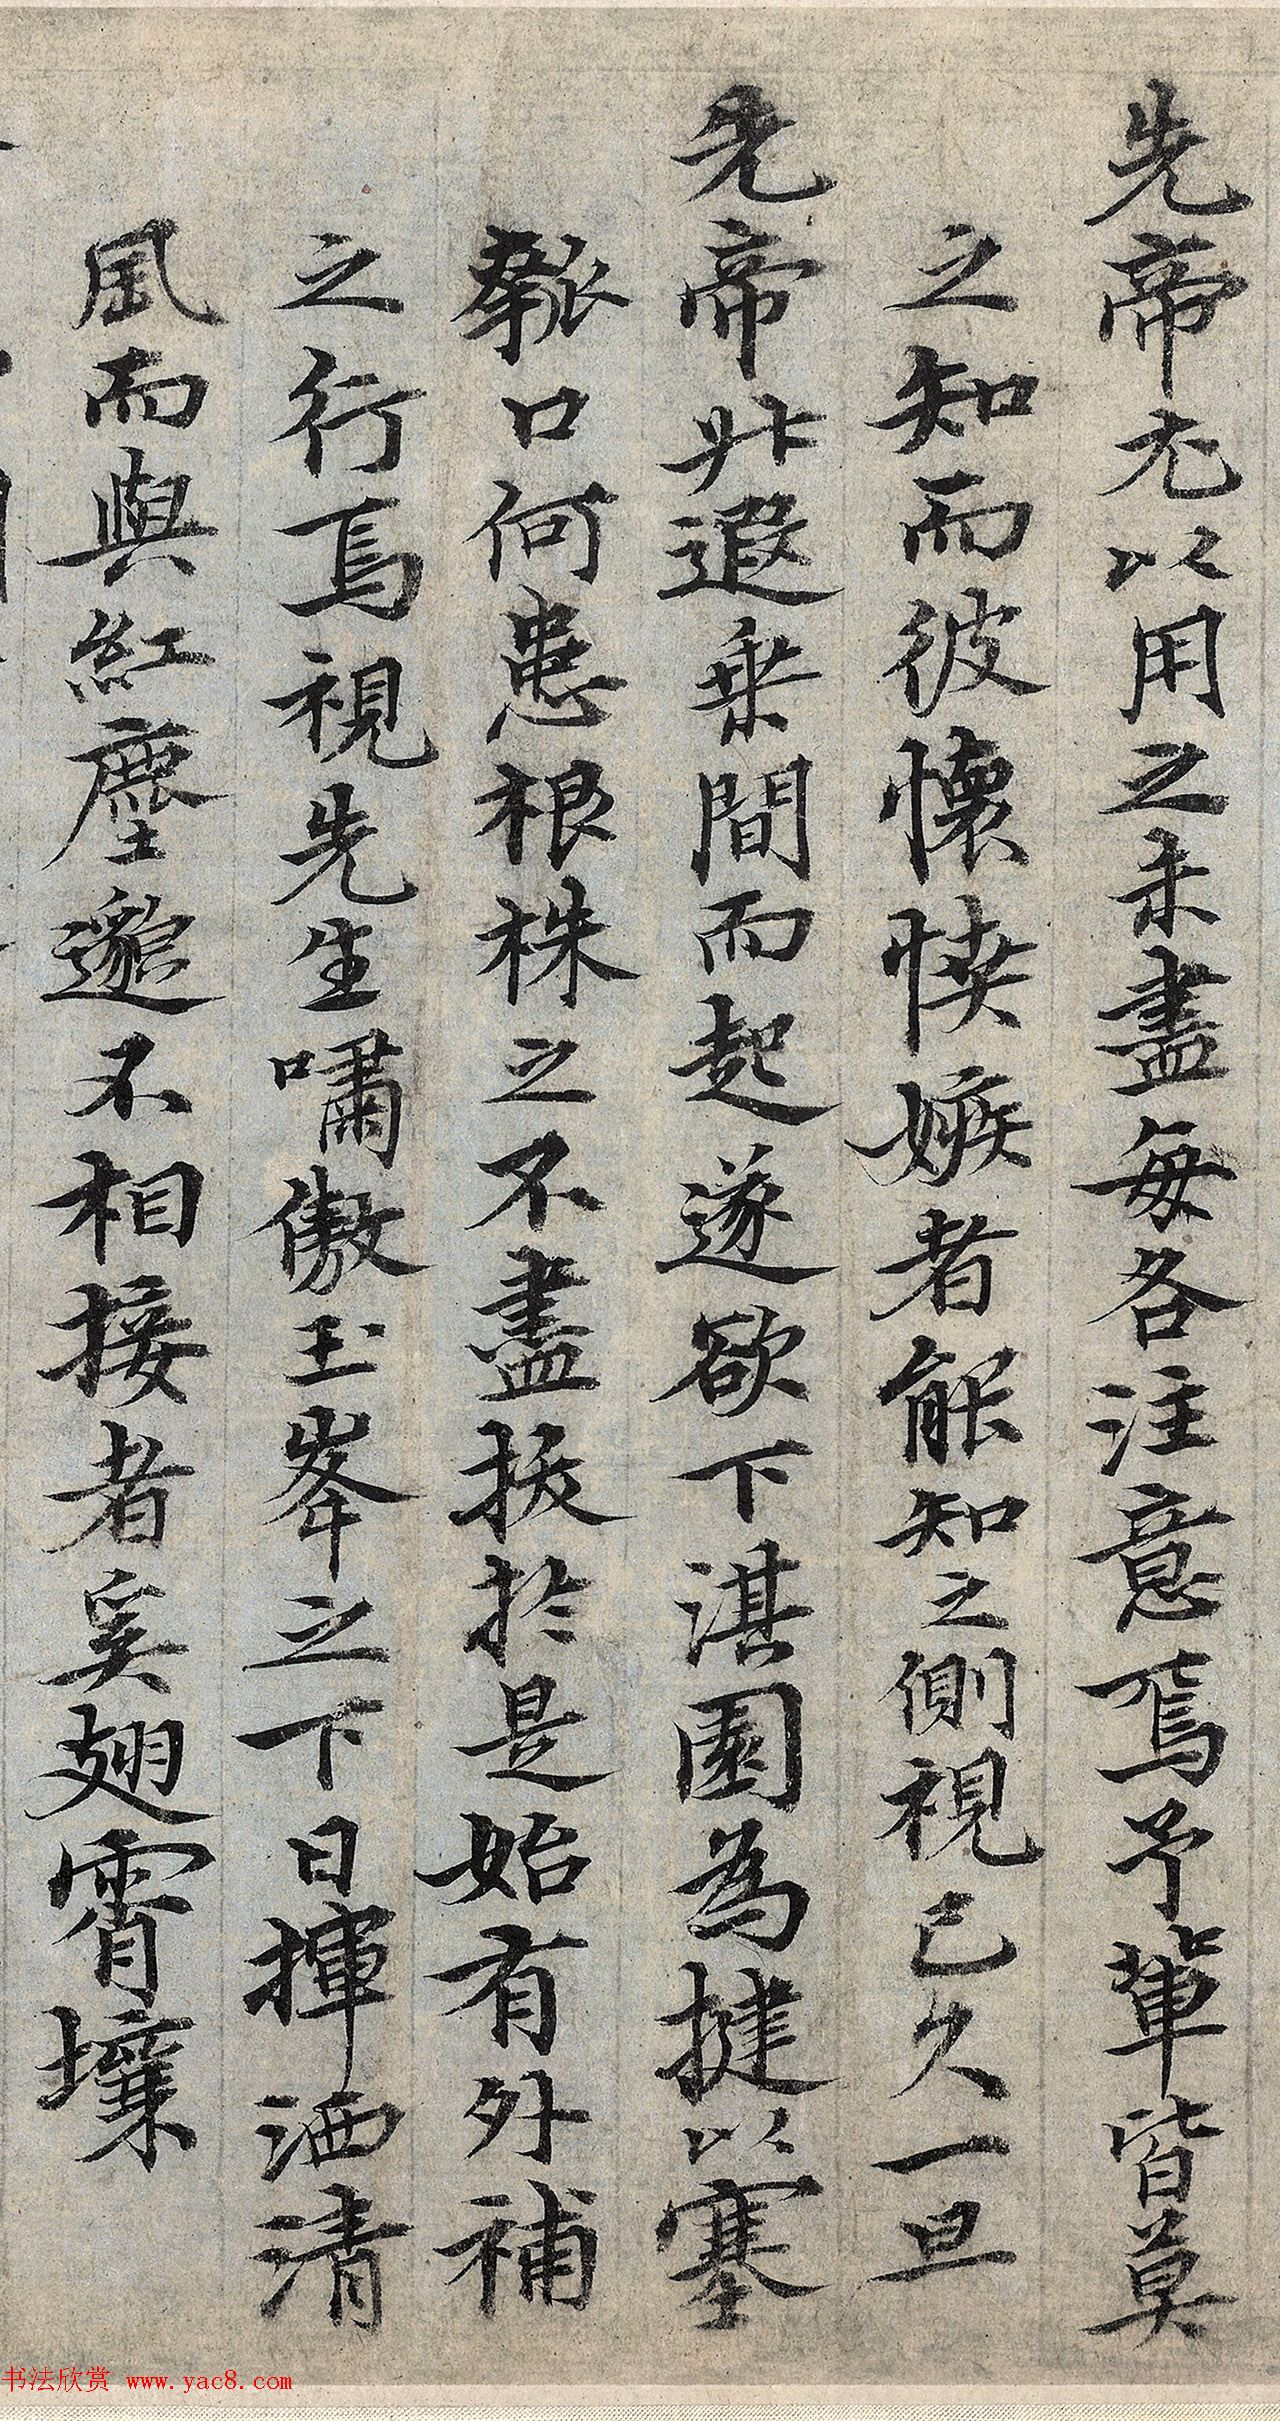 先帝尤以用之未盡每各注意焉予輩皆莫
之知而彼懷愤嫉者能知之側視已久一旦
先帝升遐乗間而起遂欲下淇園為揵以塞
眾口何患根株之不盡拔於是始有外補
之行焉視先生嘯傲玉峯之下日揮洒清
風而與紅塵邈不相接者奚翅霄壤
书法欣赏 www.yac8.com